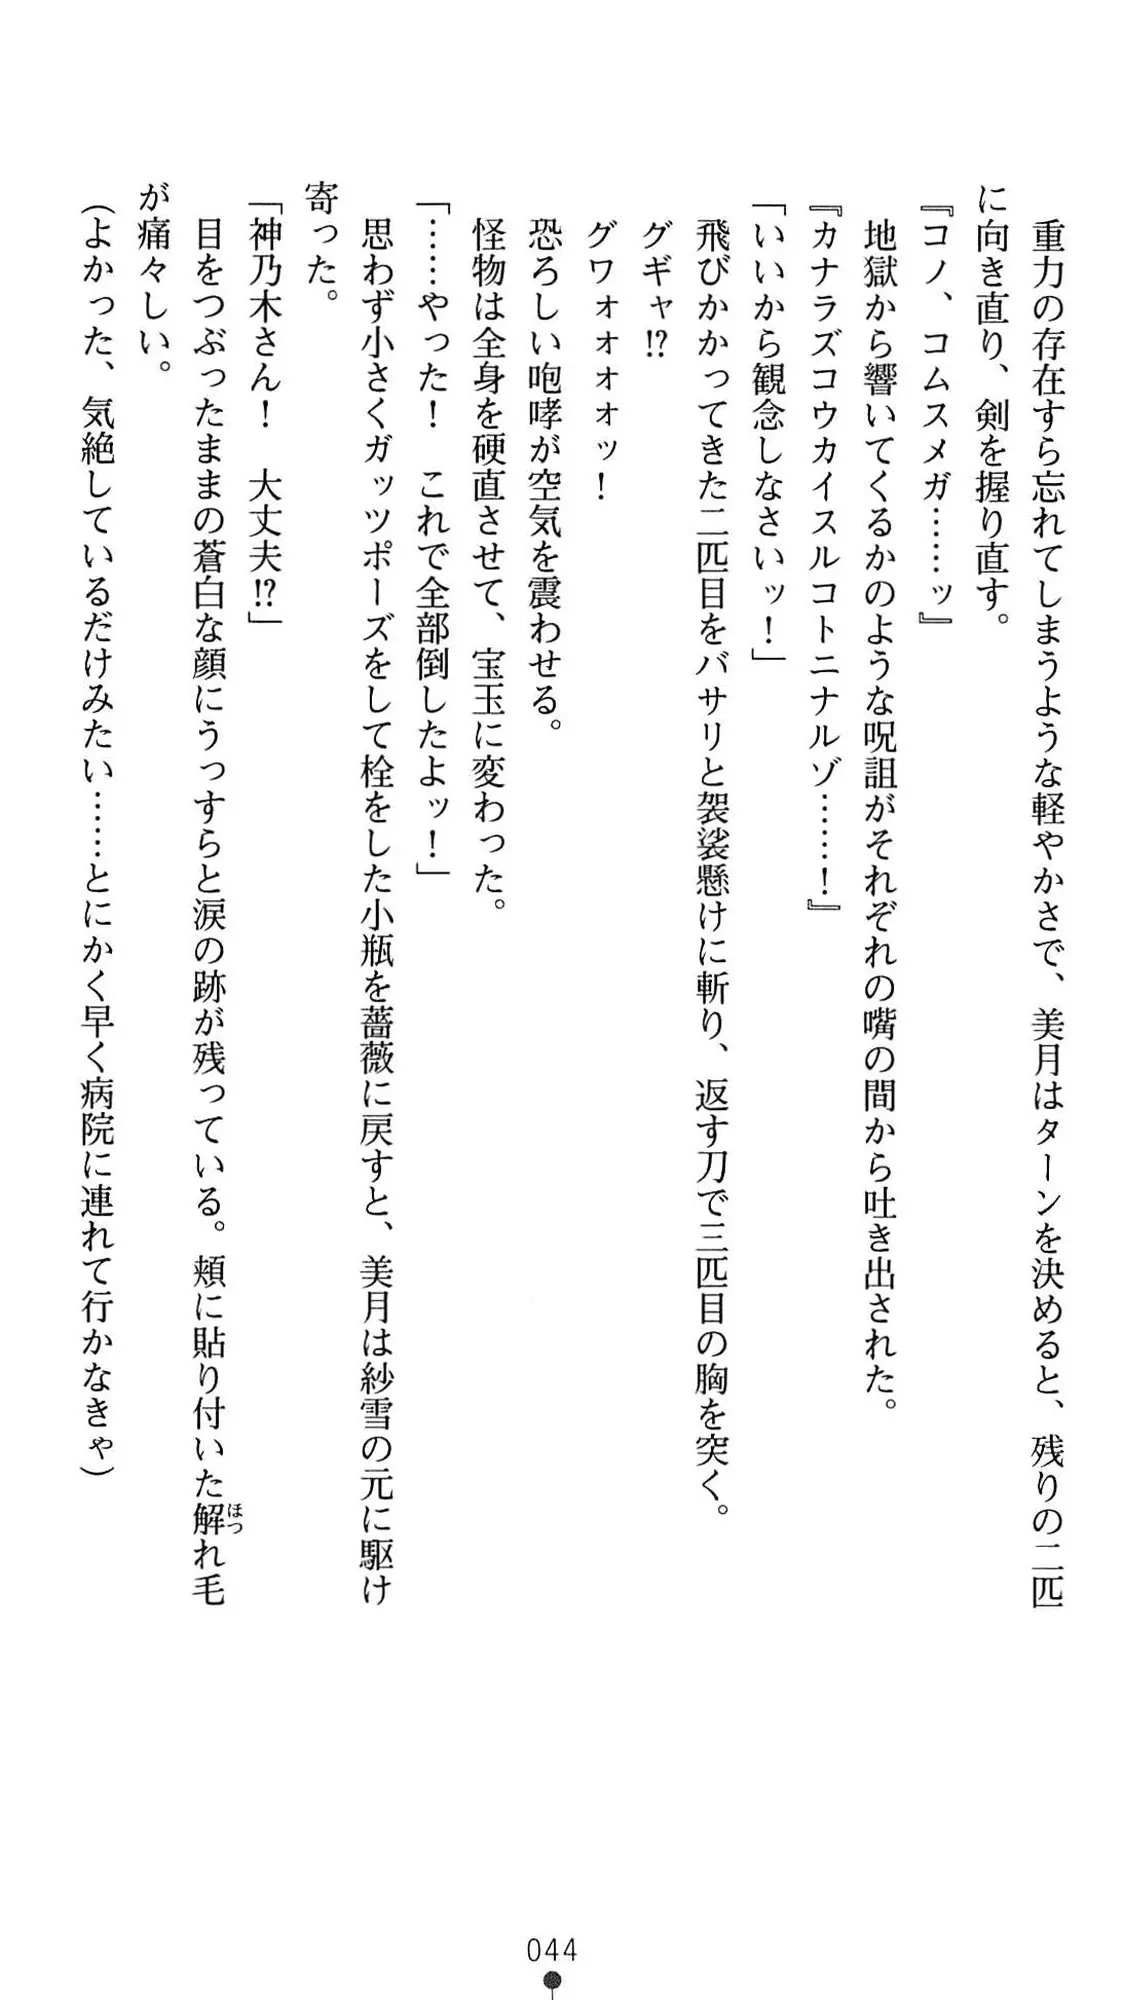 重力の存在すら忘れてしまうような軽やかさで、美月はターンを決めると、残りの二匹
に向き直り、剣を握り直す。
『コノ、コムスメガ……ッ』
地獄から響いてくるかのような呪詛がそれぞれの嘴の間から吐き出された。
『カナラズコウカイスルコトニナルゾ……！』
「いいから観念しなさいッ！」
飛びかかってきた二匹目をバサリと袈裟懸けに斬り、返す刀で三匹目の胸を突く。
グギャ⁉
グワォォォォッ！
恐ろしい咆哮が空気を震わせる。
怪物は全身を硬直させて、宝玉に変わった。
「……やった！　これで全部倒したよッ！」
思わず小さくガッツポーズをして栓をした小瓶を薔薇に戻すと、美月は紗雪の元に駆け
寄った。
「神乃木さん！　大丈夫⁉」
目をつぶったままの蒼白な顔にうっすらと涙の跡が残っている。頬に貼り付いた解れ毛
ほつ
が痛々しい。
（よかった、気絶しているだけみたい……とにかく早く病院に連れて行かなきゃ）
044